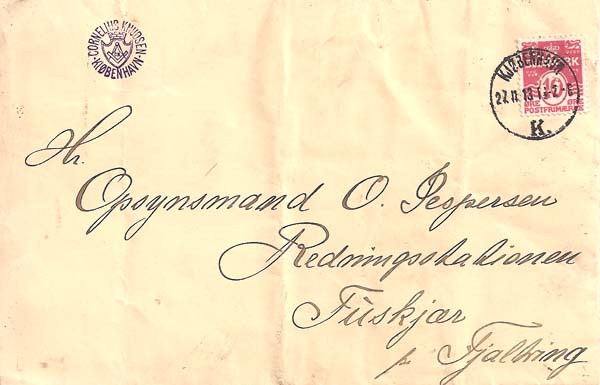 CORNELIUS KNUDSEN
KJØBENHAVN
KJØBENHAVN
K.
10
ØRE ØRE
POSTFRIMÆRKE
Hr.
Opsynsmand O. Jespersen
Redningsstationen
Tùskjær
pr. Fjaltring